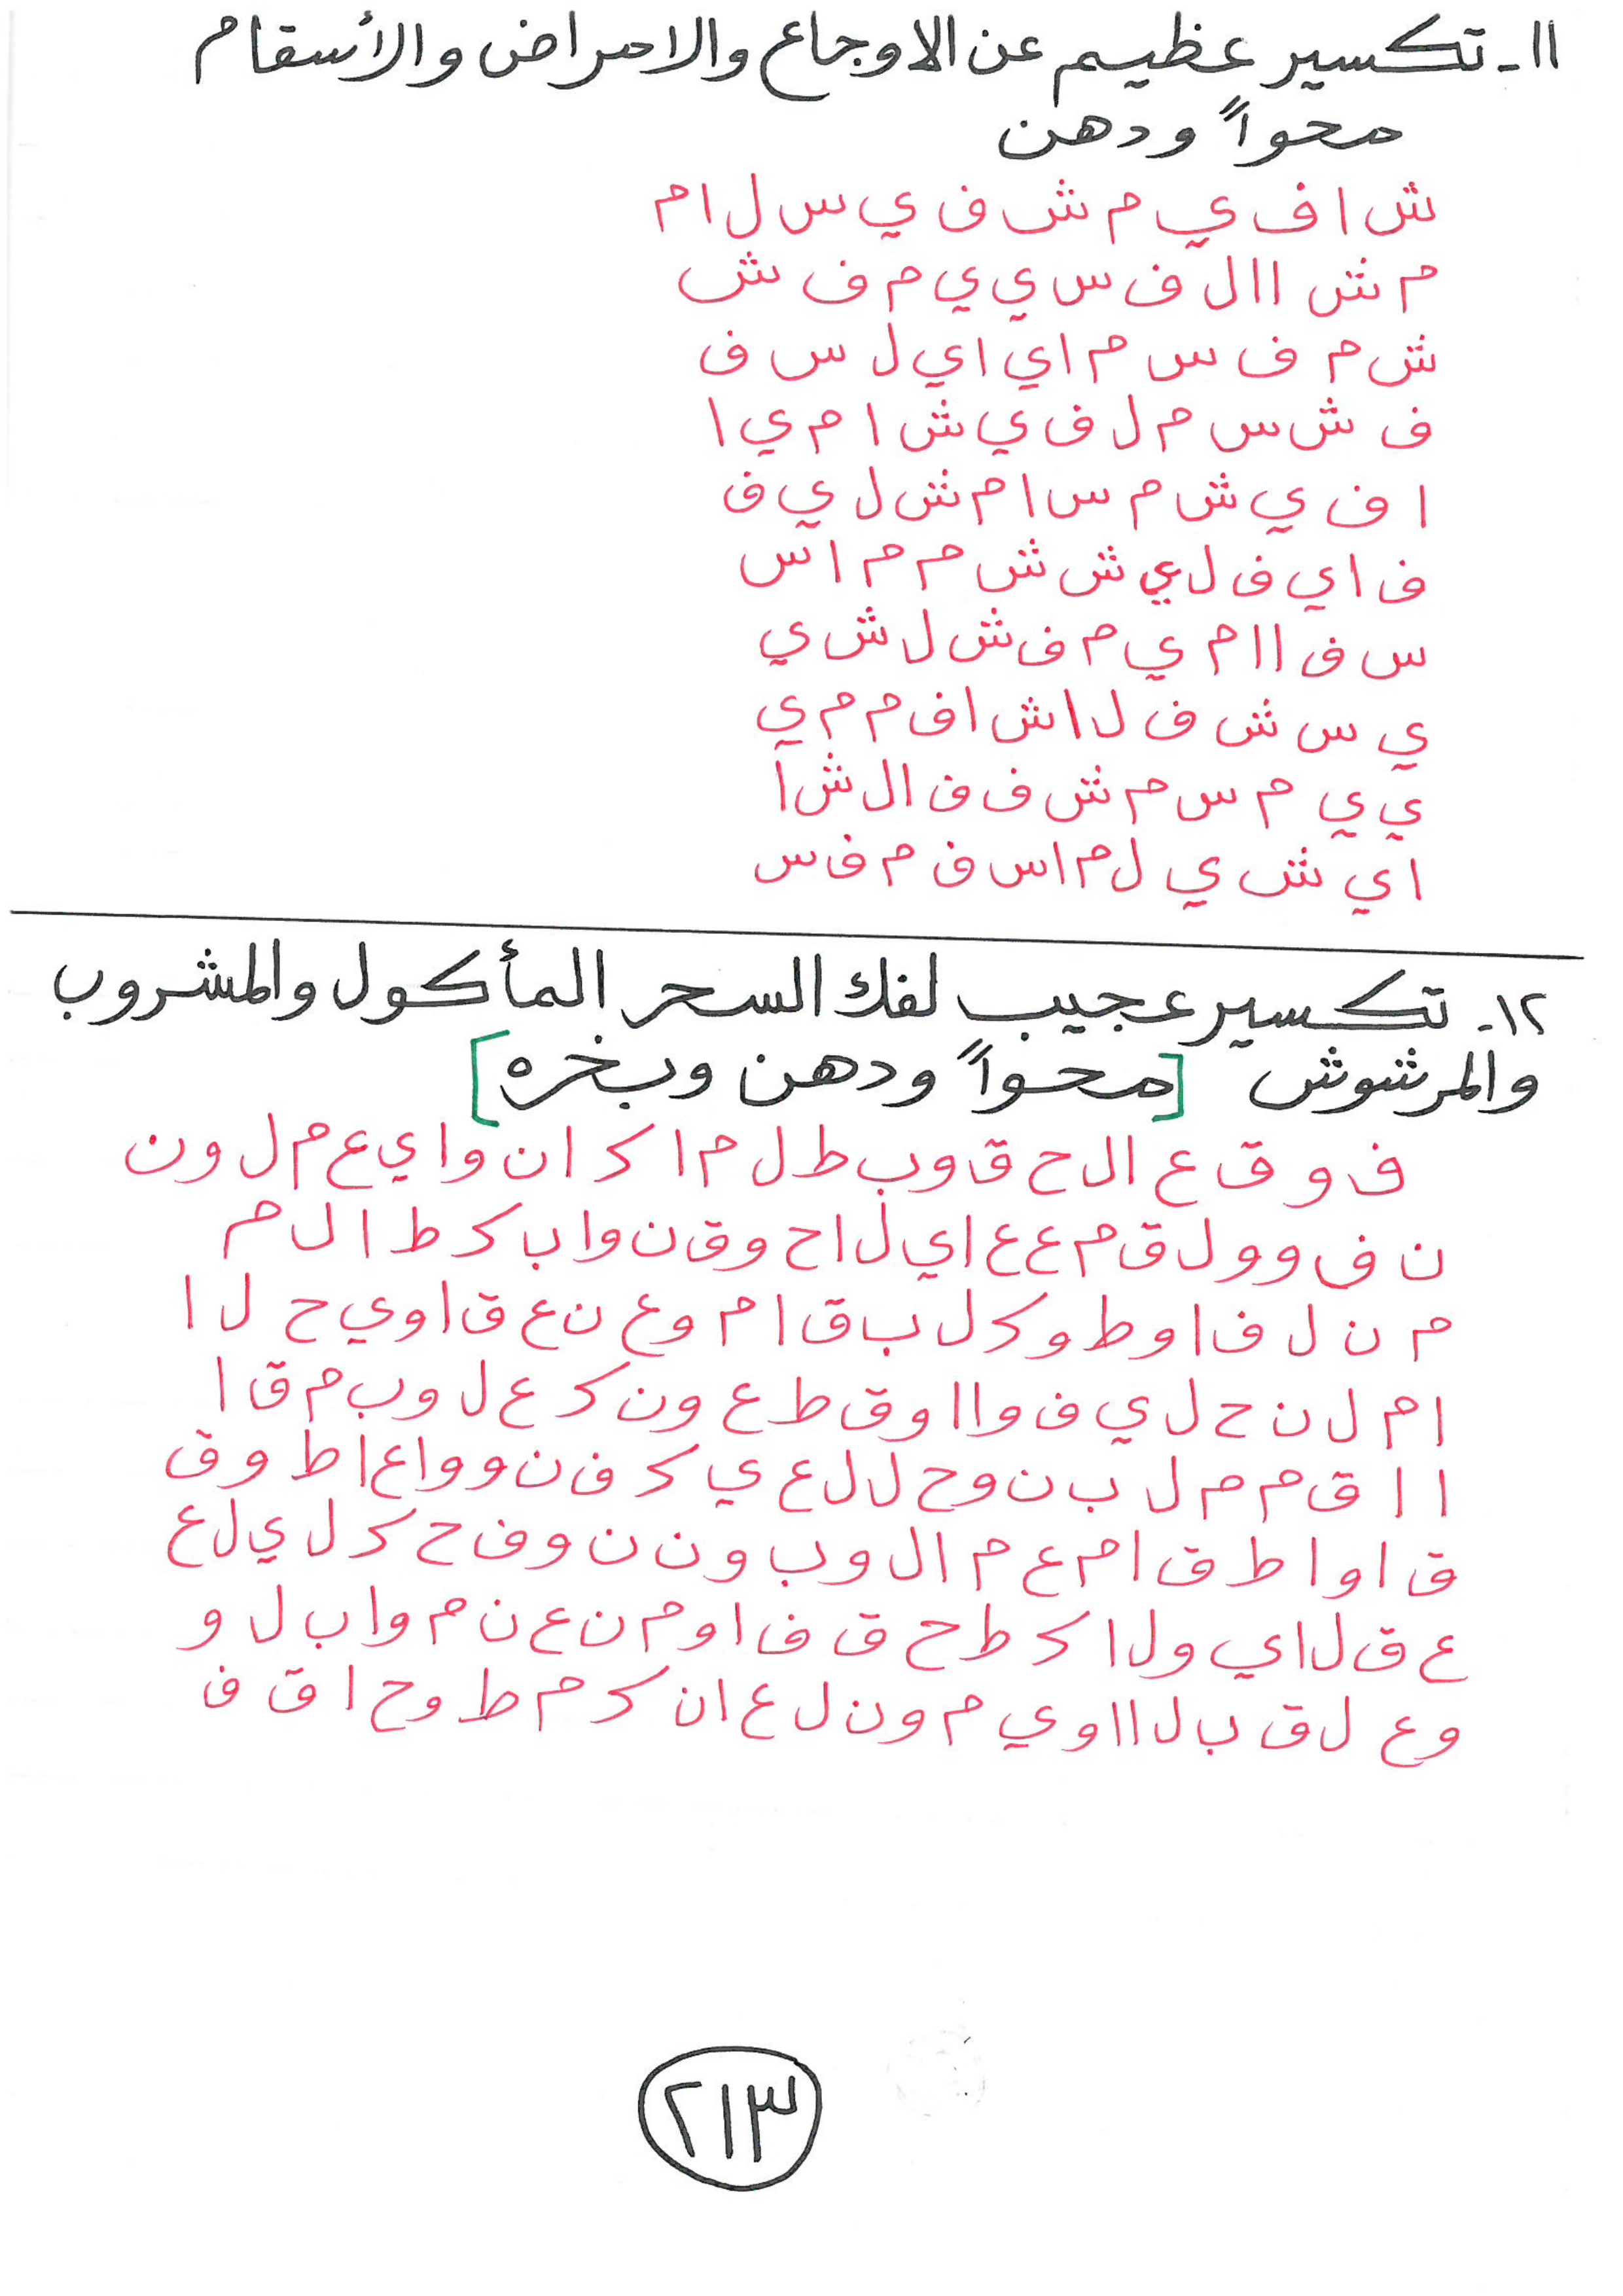 ١١- تكسير عظيم عن الاوجاع والامراض والأسقام
محواً ودهن
ش ا ف ي م ش ف ي س ل ا م
م ش ا ا ل ف س ي ي م ف ش
ش م ف س م ا ي ا ي ل س ف
ف ش س م ل ف ي ش ا م ي ا
ا ف ي ش م س ا م ش ل ي ف
ف ا ي ف ل ي ش ش م م ا س
س ف ا ا م ي م ف ش ل ش ي
ي س ش ف ل ا ش ا ف م م ي
ي ي م س م ش ف ف ا ل ش ا
ا ي ش ي ل م ا س ف م ف س
١٢- تكسير عجيب لفك السحر المأكول والمشروب
والمرشوش [محواً ودهن وبخره]
ف و ق ع ا ل ح ق و ب ط ل م ا ك ا ن و ا ي ع م ل و ن
ن ف و و ل ق م ع ع ا ي ل ا ح و ق ن و ا ب ك ط ا ل م
م ن ل ف ا و ط و ك ل ب ق ا م و ع ن ع ق ا و ي ح ل ا
ا م ل ن ح ل ي ف و ا ا و ق ط ع و ن ك ع ل و ب م ق ا
ا ا ق م م ل ب ن و ح ل ل ع ي ك ف ن و و ا ع ا ط و ق
ق ا و ا ط ق ا م ع م ا ل و ب و ن ن و ف ح ك ل ي ل ع
ع ق ل ا ي و ل ا ك ط ح ق ف ا و م ن ع ن م و ا ب ل و
و ع ل ق ب ل ا ا و ي م و ن ل ع ا ن ك م ط و ح ا ق ف
٢١٣